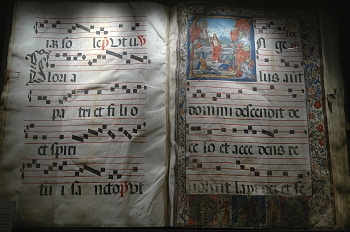 Gloria
pa tri et fi li o
et spiri
tu i sa ncto put
An ge
lus aut
domini descendit de
ce lo et acce dens re
uoluit lapidem et se